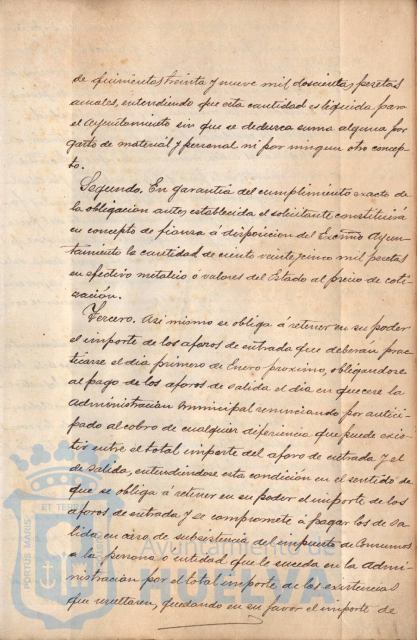 de quinientas treinta y nueve mil doscientas pesetas
anuales, entendiendo que esta cantidad es liquida para
el Ayuntamiento sin que se deduzca suma alguna por
gasto de material y personal ni por ningun otro concep-
to.
Segundo. En garantia del cumplimiento exacto de
la obligacion antes establecida el solicitante constituirá
en concepto de fianza á disposicion del Excmo Ayun-
tamiento la cantidad de ciento veinticinco mil pesetas
en efectivo metalico ó valores del Estado al precio de coti-
zación.
Tercero. Asi mismo se obliga á retener en su poder
el importe de los aforos de entrada que deberán prac-
ticarse el dia primero de Enero proximo, obligandose
al pago de los aforos de salida el dia en que cese la
Administracion Municipal renunciando por antici-
pado al cobro de cualquier diferencia que puede exis-
tir entre el total importe del aforo de entrada y el
de salida, entendiendose esta condición en el sentido de
que se obliga á retener en su poder el importe de los
aforos de entrada y se compromete á pagar los de sa-
lida en caso de subsistencia del impuesto de Consumos
a la persona ó entidad que le suceda en la Admi-
nistracion por el total importe de las existencias
que resultaren, quedando en su favor el importe de
PORTUS MARIS
ET TERRAE
Ayuntamiento de
HUELVA